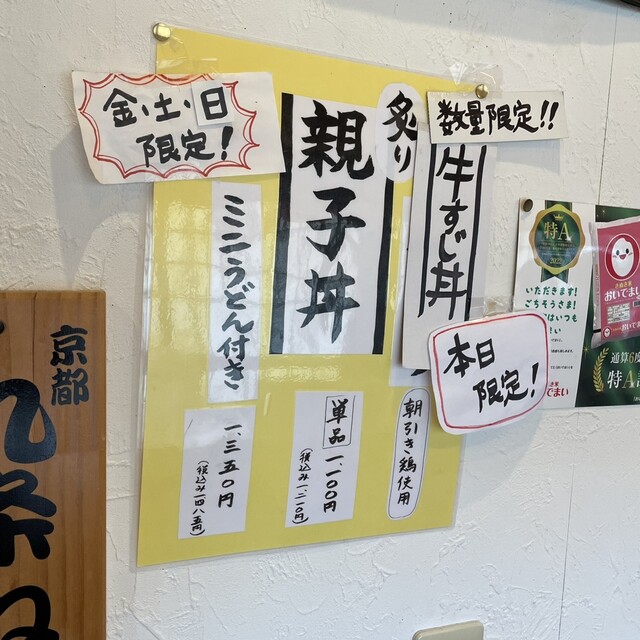 金・土・日
限定!
数量限定!!
炙り
親子丼
牛すじ丼
ミニうどん付き
本日
限定!
朝引き鶏使用
単品
一、一〇〇円
(税込み一二一〇円)
一、三五〇円
(税込み一四八五円)
京都
九条ね
特A
いただきます!
ごちそうさま!
さぬき米
おいでまい
通算6度
特A